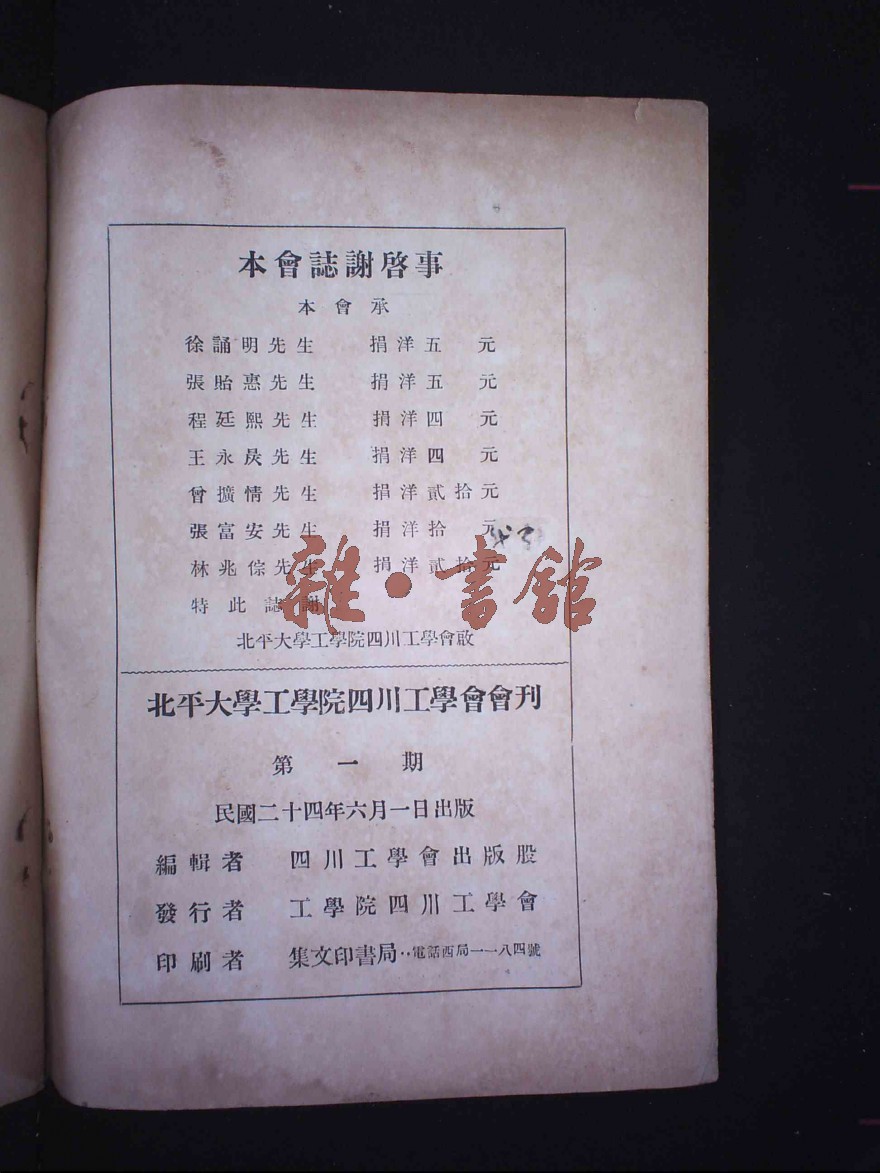 本會誌謝啓事
本會承
徐誦明先生 捐洋五元
張貽惠先生 捐洋五元
程廷熙先生 捐洋四元
王永炅先生 捐洋四元
曾擴情先生 捐洋貳拾元
張富安先生 捐洋拾元
林兆倧先生 捐洋貳拾元
特此誌謝
雜·書館
北平大學工學院四川工學會啟
北平大學工學院四川工學會會刊
第一期
民國二十四年六月一日出版
編輯者 四川工學會出版股
發行者 工學院四川工學會
印刷者 集文印書局··電話西局一一八四號